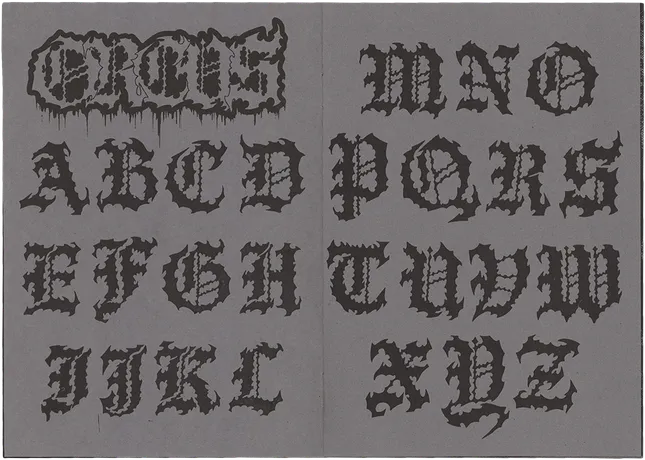 ORCUS
ABCD
EFGH
IJKL
MNO
PQRS
TUVW
XYZ